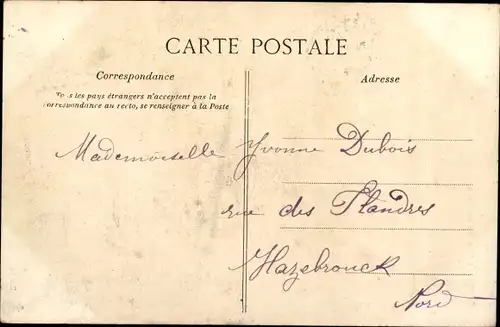 CARTE POSTALE
Correspondance
Tous les pays étrangers n'acceptent pas la
correspondance au recto, se renseigner à la Poste
Adresse
Mademoiselle Yvonne Dubois
rue des Flandres
Hazebrouck
Nord